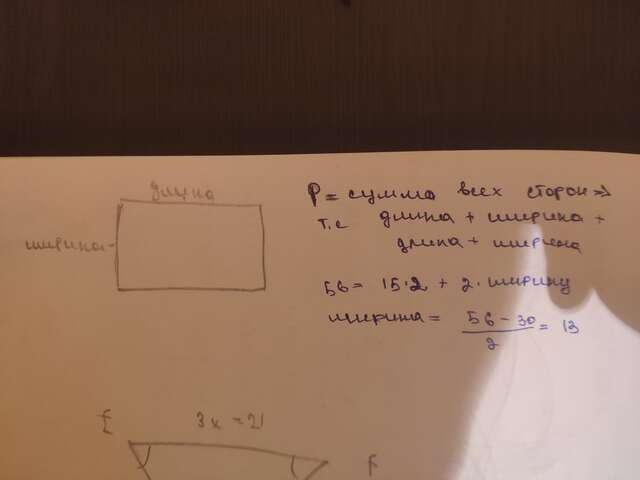 длина
ширина
P = сумма всех сторон =>
т.е длина + ширина +
длина + ширина
56 = 15·2 + 2·ширину
ширина = 56 - 30 / 2 = 13
E 3x = 21 F